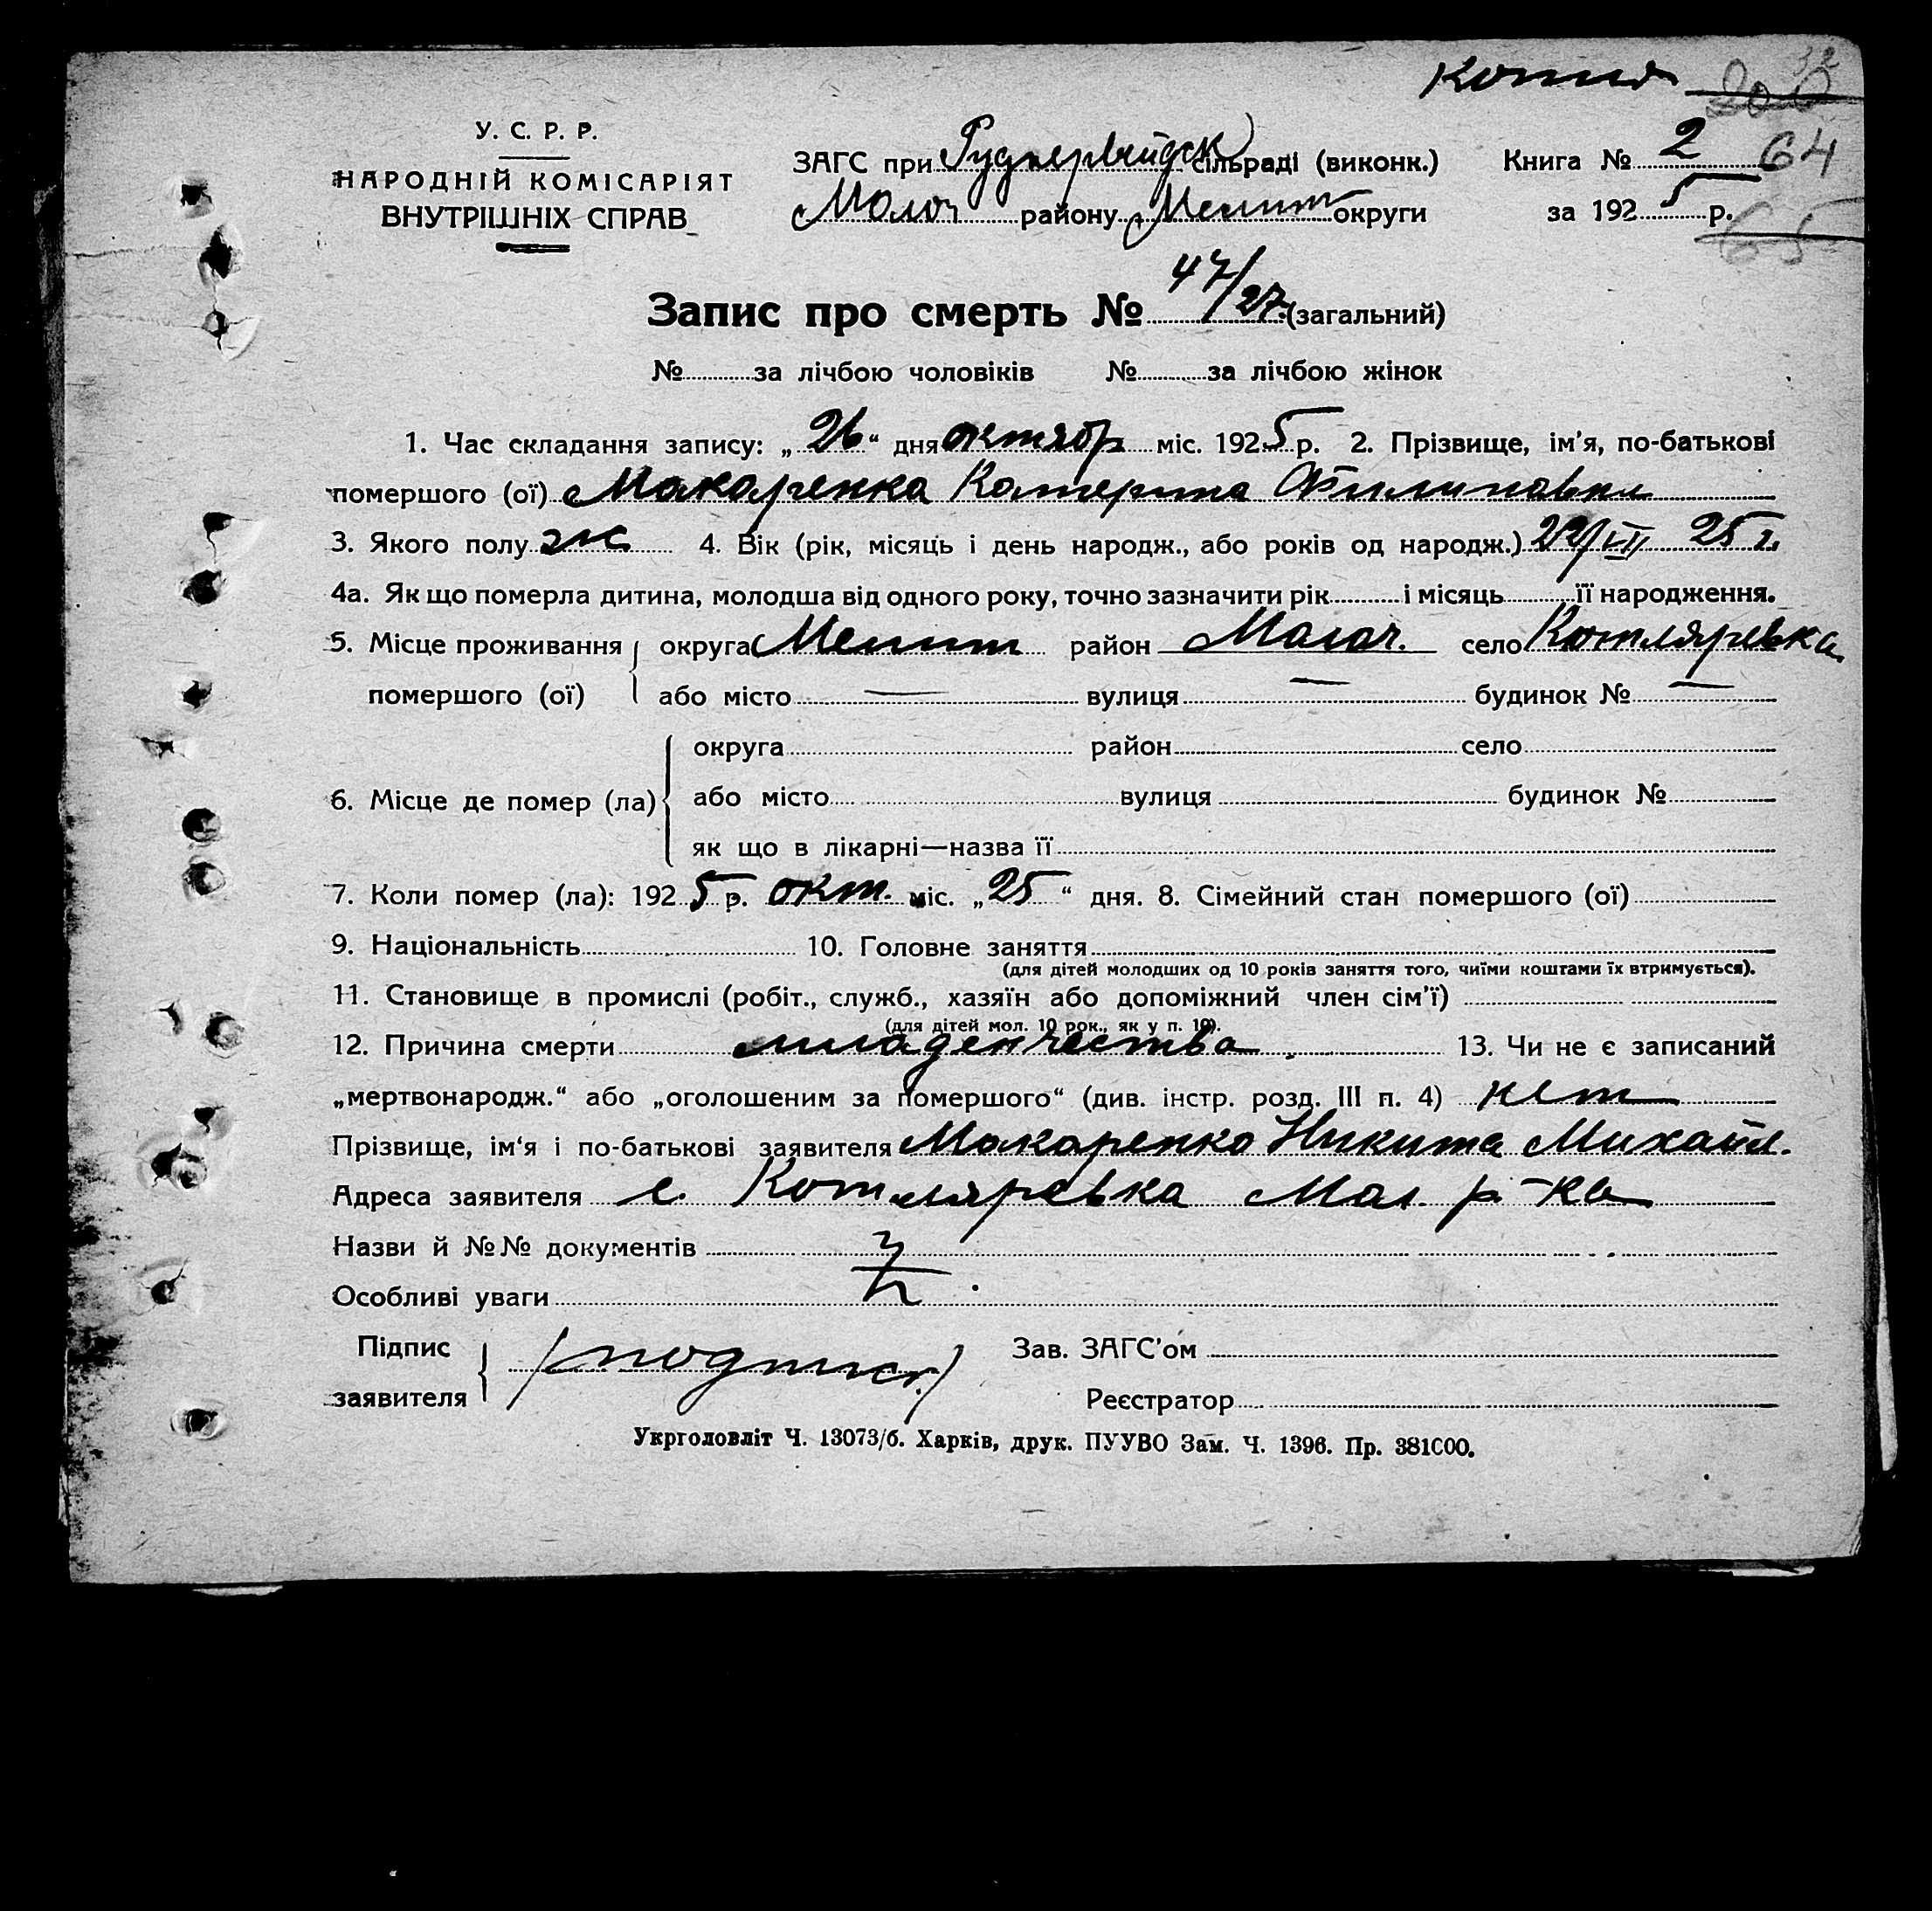 Копия
У. С. Р. Р.
НАРОДНІЙ КОМІСАРІЯТ
ВНУТРІШНІХ СПРАВ
ЗАГС при сільраді (виконк.) Книга № 2 64
Молоч району Мелит округи за 1925 р.
65
Запис про смерть № 47/27 (загальний)
№ за лічбою чоловіків № за лічбою жінок
1. Час складання запису: „26“ дня октябр міс. 1925 р. 2. Прізвище, ім’я, по-батькові
помершого (ої) Макаренка Катерина Филиповна
3. Якого полу ж 4. Вік (рік, місяць і день народж., або років од народж.) 25 г.
4а. Як що померла дитина, молодша від одного року, точно зазначити рік і місяць її народження.
5. Місце проживання округа Мелит район Молоч. село Котляревка
помершого (ої) або місто — вулиця — будинок № —
округа район село
6. Місце де помер (ла) або місто вулиця будинок №
як що в лікарні—назва її
7. Коли помер (ла): 1925 р. окт. міс. „25“ дня. 8. Сімейний стан помершого (ої)
9. Національність 10. Головне заняття
(для дітей молодших од 10 років заняття того, чиїми коштами їх втримується).
11. Становище в промислі (робіт., служб., хазяїн або допоміжний член сім’ї)
(для дітей мол. 10 рок., як у п. 10).
12. Причина смерти младенчества 13. Чи не є записаний
„мертвонародж.“ або „оголошеним за помершого“ (див. інстр. розд. III п. 4) нет
Прізвище, ім‘я і по-батькові заявителя Макаренко Никита Михайл.
Адреса заявителя с. Котляревка Мол. р-на
Назви й №№ документів
Особливі уваги
Підпис заявителя (подпись) Зав. ЗАГС’ом
Реєстратор
Укрголовліт Ч. 13073/б. Харків, друк. ПУУВО Зам. Ч. 1396. Пр. 381000.